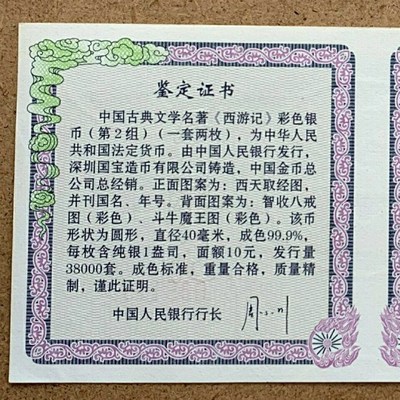 鉴定证书
中国古典文学名著《西游记》彩色银
币（第2组）（一套两枚），为中华人民
共和国法定货币。由中国人民银行发行，
深圳国宝造币有限公司铸造，中国金币总
公司总经销。正面图案为：西天取经图，
并刊国名、年号。背面图案为：智收八戒
图（彩色）、斗牛魔王图（彩色）。该币
形状为圆形，直径40毫米，成色99.9%，
每枚含纯银1盎司，面额10元，发行量
38000套。成色标准，重量合格，质量精
制，谨此证明。
中国人民银行行长